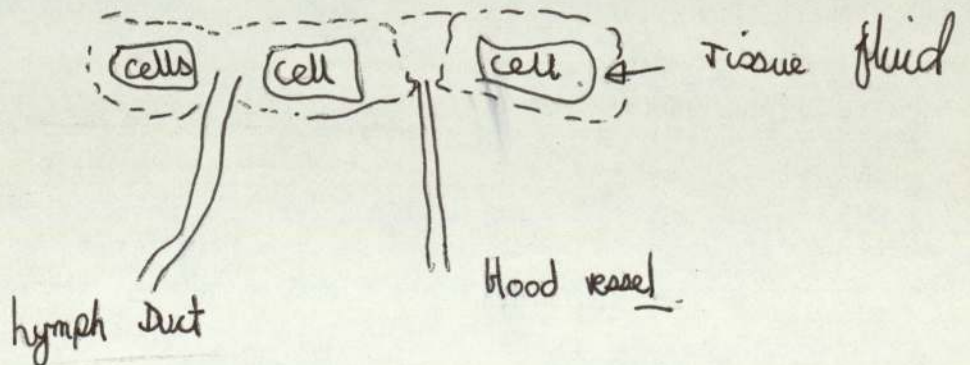 cells cell cell Tissue fluid
Blood vessel
Lymph Duct